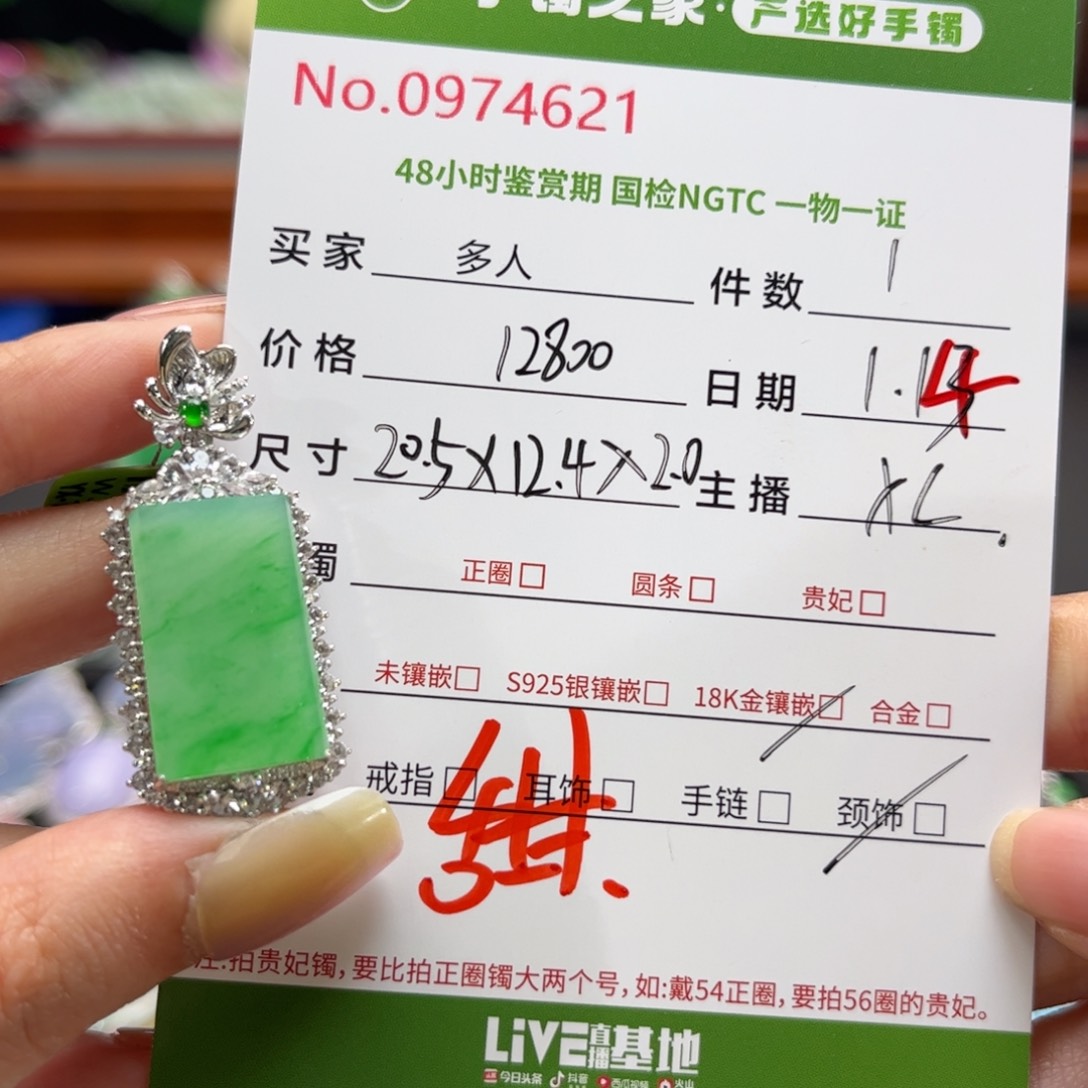 手镯之家·严选好手镯
No.0974621
48小时鉴赏期 国检NGTC 一物一证
买家 多人 件数 1
价格 12800 日期 1.14
尺寸 20.5×12.4×2.0 主播 XL
镯 正圈□ 圆条□ 贵妃□
未镶嵌□ S925银镶嵌□ 18K金镶嵌□ 合金□
戒指□ 耳饰□ 手链□ 颈饰□
注:拍贵妃镯,要比拍正圈镯大两个号,如:戴54正圈,要拍56圈的贵妃。
LiVE直播基地
今日头条 抖音 西瓜视频 火山